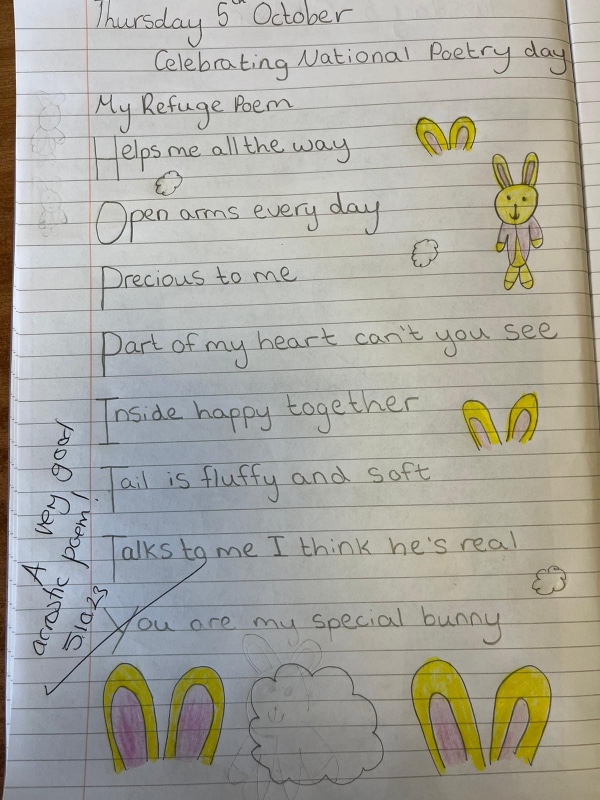 Thursday 5th October
Celebrating National Poetry day
My Refuge Poem
Helps me all the way
Open arms every day
Precious to me
Part of my heart can't you see
Inside happy together
Tail is fluffy and soft
Talks to me I think he's real
You are my special bunny
A very good
acrostic poem!
5.10.23